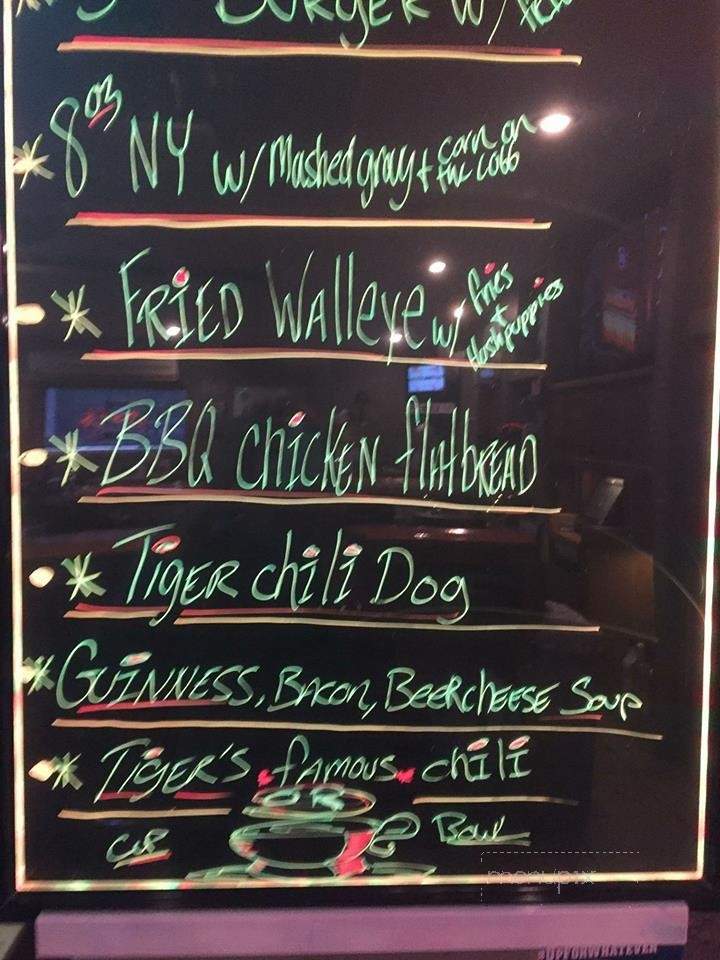 BURGER W/
* 8 oz NY w/ Mashed gravy + corn on the cobb
* FRIED Walleye w/ fries + Hushpuppies
* BBQ chicken flatbread
* Tiger chili Dog
* Guinness, Bacon, Beercheese Soup
* Tiger's famous chili
OR
Cup Bowl
menupix
#UPFORWHATEVER